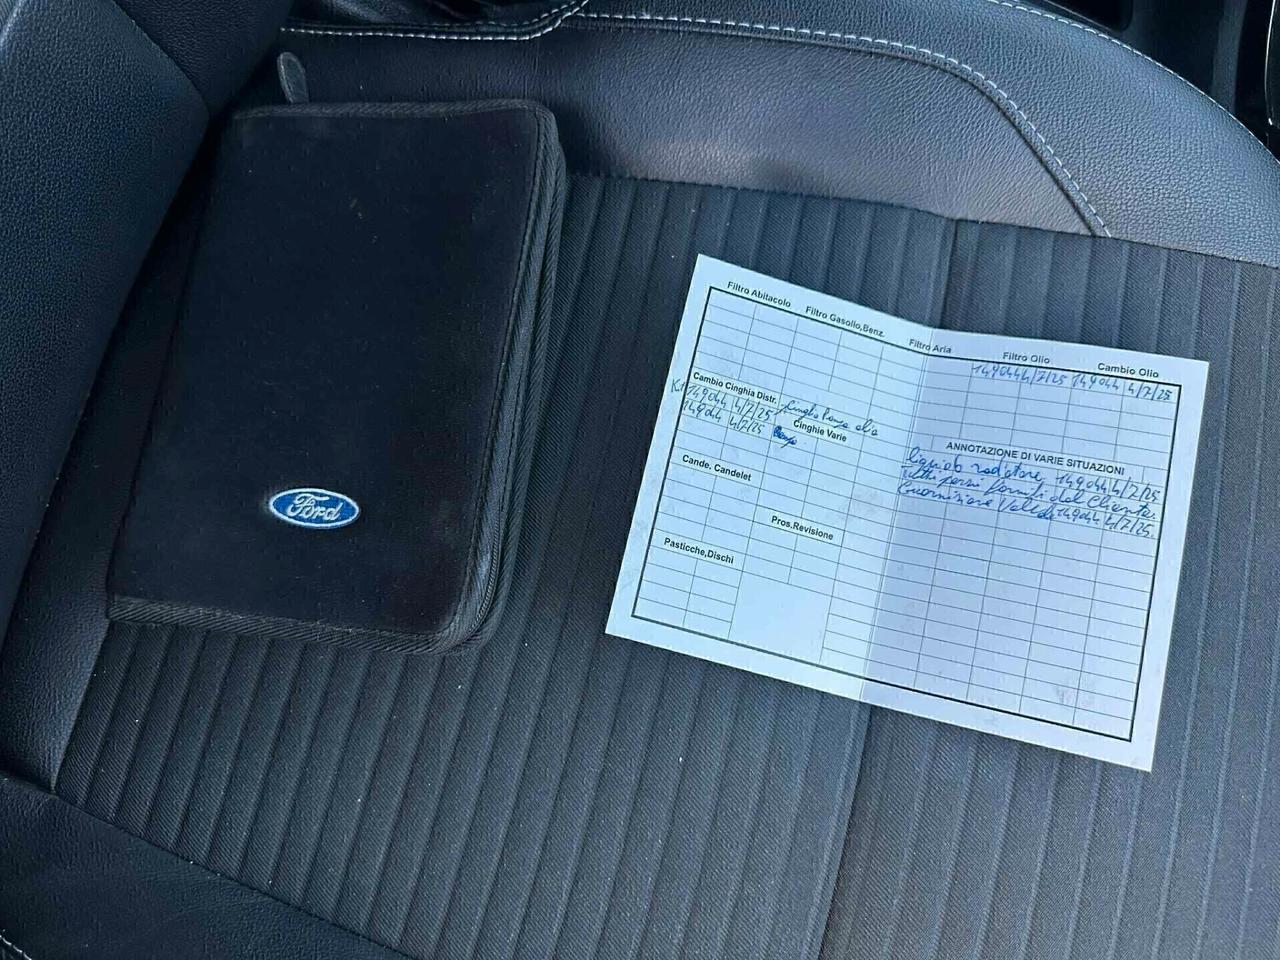 Ford
Filtro Abitacolo Filtro Gasolio,Benz. Filtro Aria Filtro Olio Cambio Olio
149044 4/7/25 149044 4/7/25
Cambio Cinghia Distr.
Kit 149044 4/7/25 Cinghia Pompa olio
149044 4/7/25
Cinghie Varie
ANNOTAZIONE DI VARIE SITUAZIONI
liquido radiatore, 149044 4/7/25
Tutti pezzi forniti dal Cliente
Guarnizione 149044 4/7/25.
Cande. Candelet
Pros.Revisione
Pasticche,Dischi